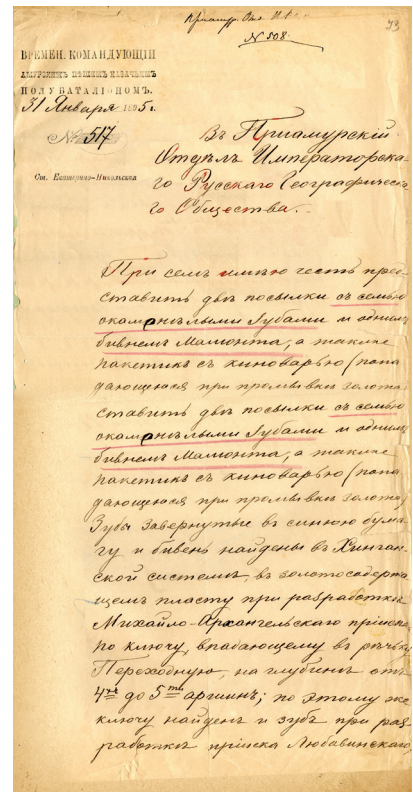 Приамур. Отд.
93
№ 508.
ВРЕМЕН. КОМАНДУЮЩІЙ
АМУРСКИМЪ ПѢШИМЪ КАЗАЧЬИМЪ
ПОЛУБАТАЛІОНОМЪ.
31 Января 1895 г.
№ 517
Ст. Екатерино-Никольская
Въ Приамурскій
Отдѣлъ Императорска-
го Русскаго Географическа-
го Общества.
При семъ имѣю честь пред-
ставить двѣ посылки съ семью
окаменѣлыми зубами и однимъ
бивнемъ Мамонта, а также
пакетикъ съ киноварью (попа
дающеюся при промывкѣ золота)
ставить двѣ посылки съ семью
окаменѣлыми зубами и однимъ
бивнемъ Мамонта, а также
пакетикъ съ киноварью (попа
дающеюся при промывкѣ золота)
Зубы завернутые въ синюю бума-
гу и бивень найдены въ Хинган-
ской системѣ, въ золотосодержа
щемъ пласту при разработкѣ
Михайло-Архангельскаго пріиска,
по ключу, впадающему въ рѣчку
Переходную, на глубинѣ отъ
4хъ до 5ти аршинъ; по этому же
ключу найденъ и зубъ при раз
работкѣ пріиска Любавинскаго,